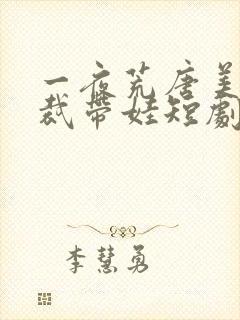 一夜荒唐美
裁带娃短劇
李慧勇